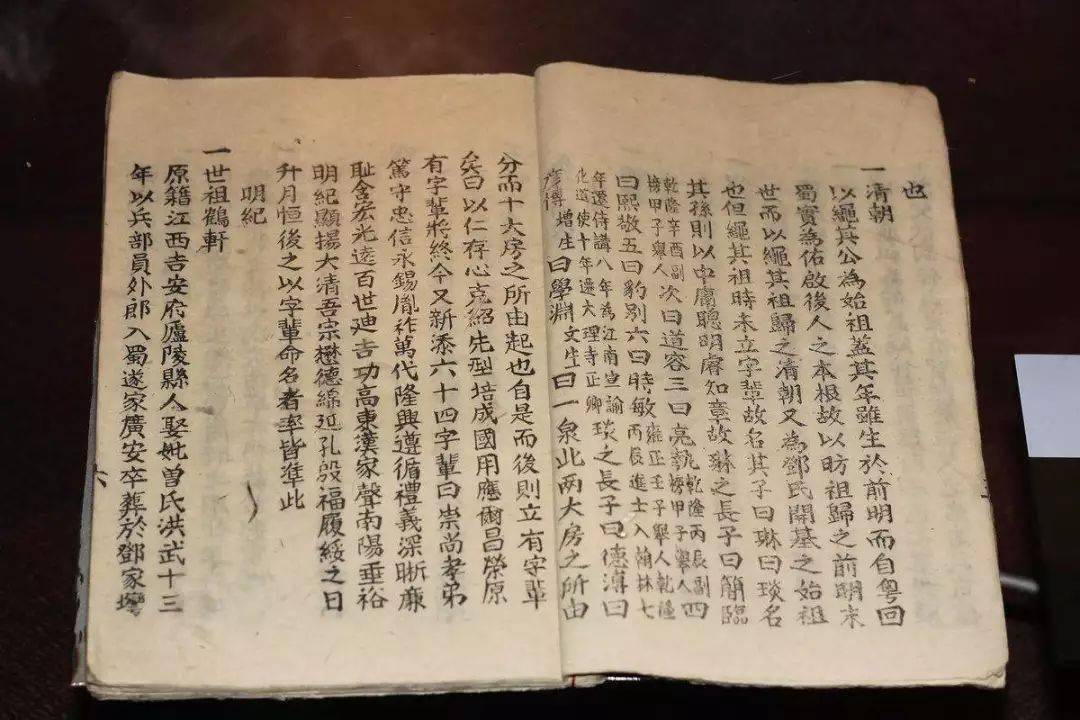 也
一清朝
以繩其公為始祖蓋其年雖生於前明而自粵回
蜀實為佑啟後人之本根故以昉祖歸之前明末
世而以繩其祖歸之清朝又為鄧氏開基之始祖
也但繩其祖時未立字輩故名其子曰琳曰琰名
其孫則以中庸聰明睿知章故琳之長子曰簡臨
乾隆辛酉副
榜甲子舉人
次曰道容三曰亮執
乾隆丙辰副
榜甲子舉人
四
曰熙敬五曰豹別六曰時敏
雍正壬子舉人乾隆
丙辰進士入翰林七
年還侍講八年為江南宣諭
化道使十年還大理寺正卿
琰之長子曰德溥曰
增生
曰學淵
文生
曰一泉此兩大房之所由
分而十大房之所由起也自是而後則立有字輩
矣曰以仁存心克紹先型培成國用應爾昌榮原
有字輩將終今又新添六十四字輩曰崇尚孝弟
篤守忠信永錫胤祚萬代隆興遵循禮義深晰廉
耻含宏光遠百世迪吉功高東漢家聲南陽垂裕
明紀顯揚大清吾宗懋德綿延孔殷福履綏之日
升月恒後之以字輩命名者率皆準此
明紀
一世祖鶴軒
原籍江西吉安府廬陵縣人娶妣曾氏洪武十三
年以兵部員外郎入蜀遂家廣安卒葬於鄧家壪
六